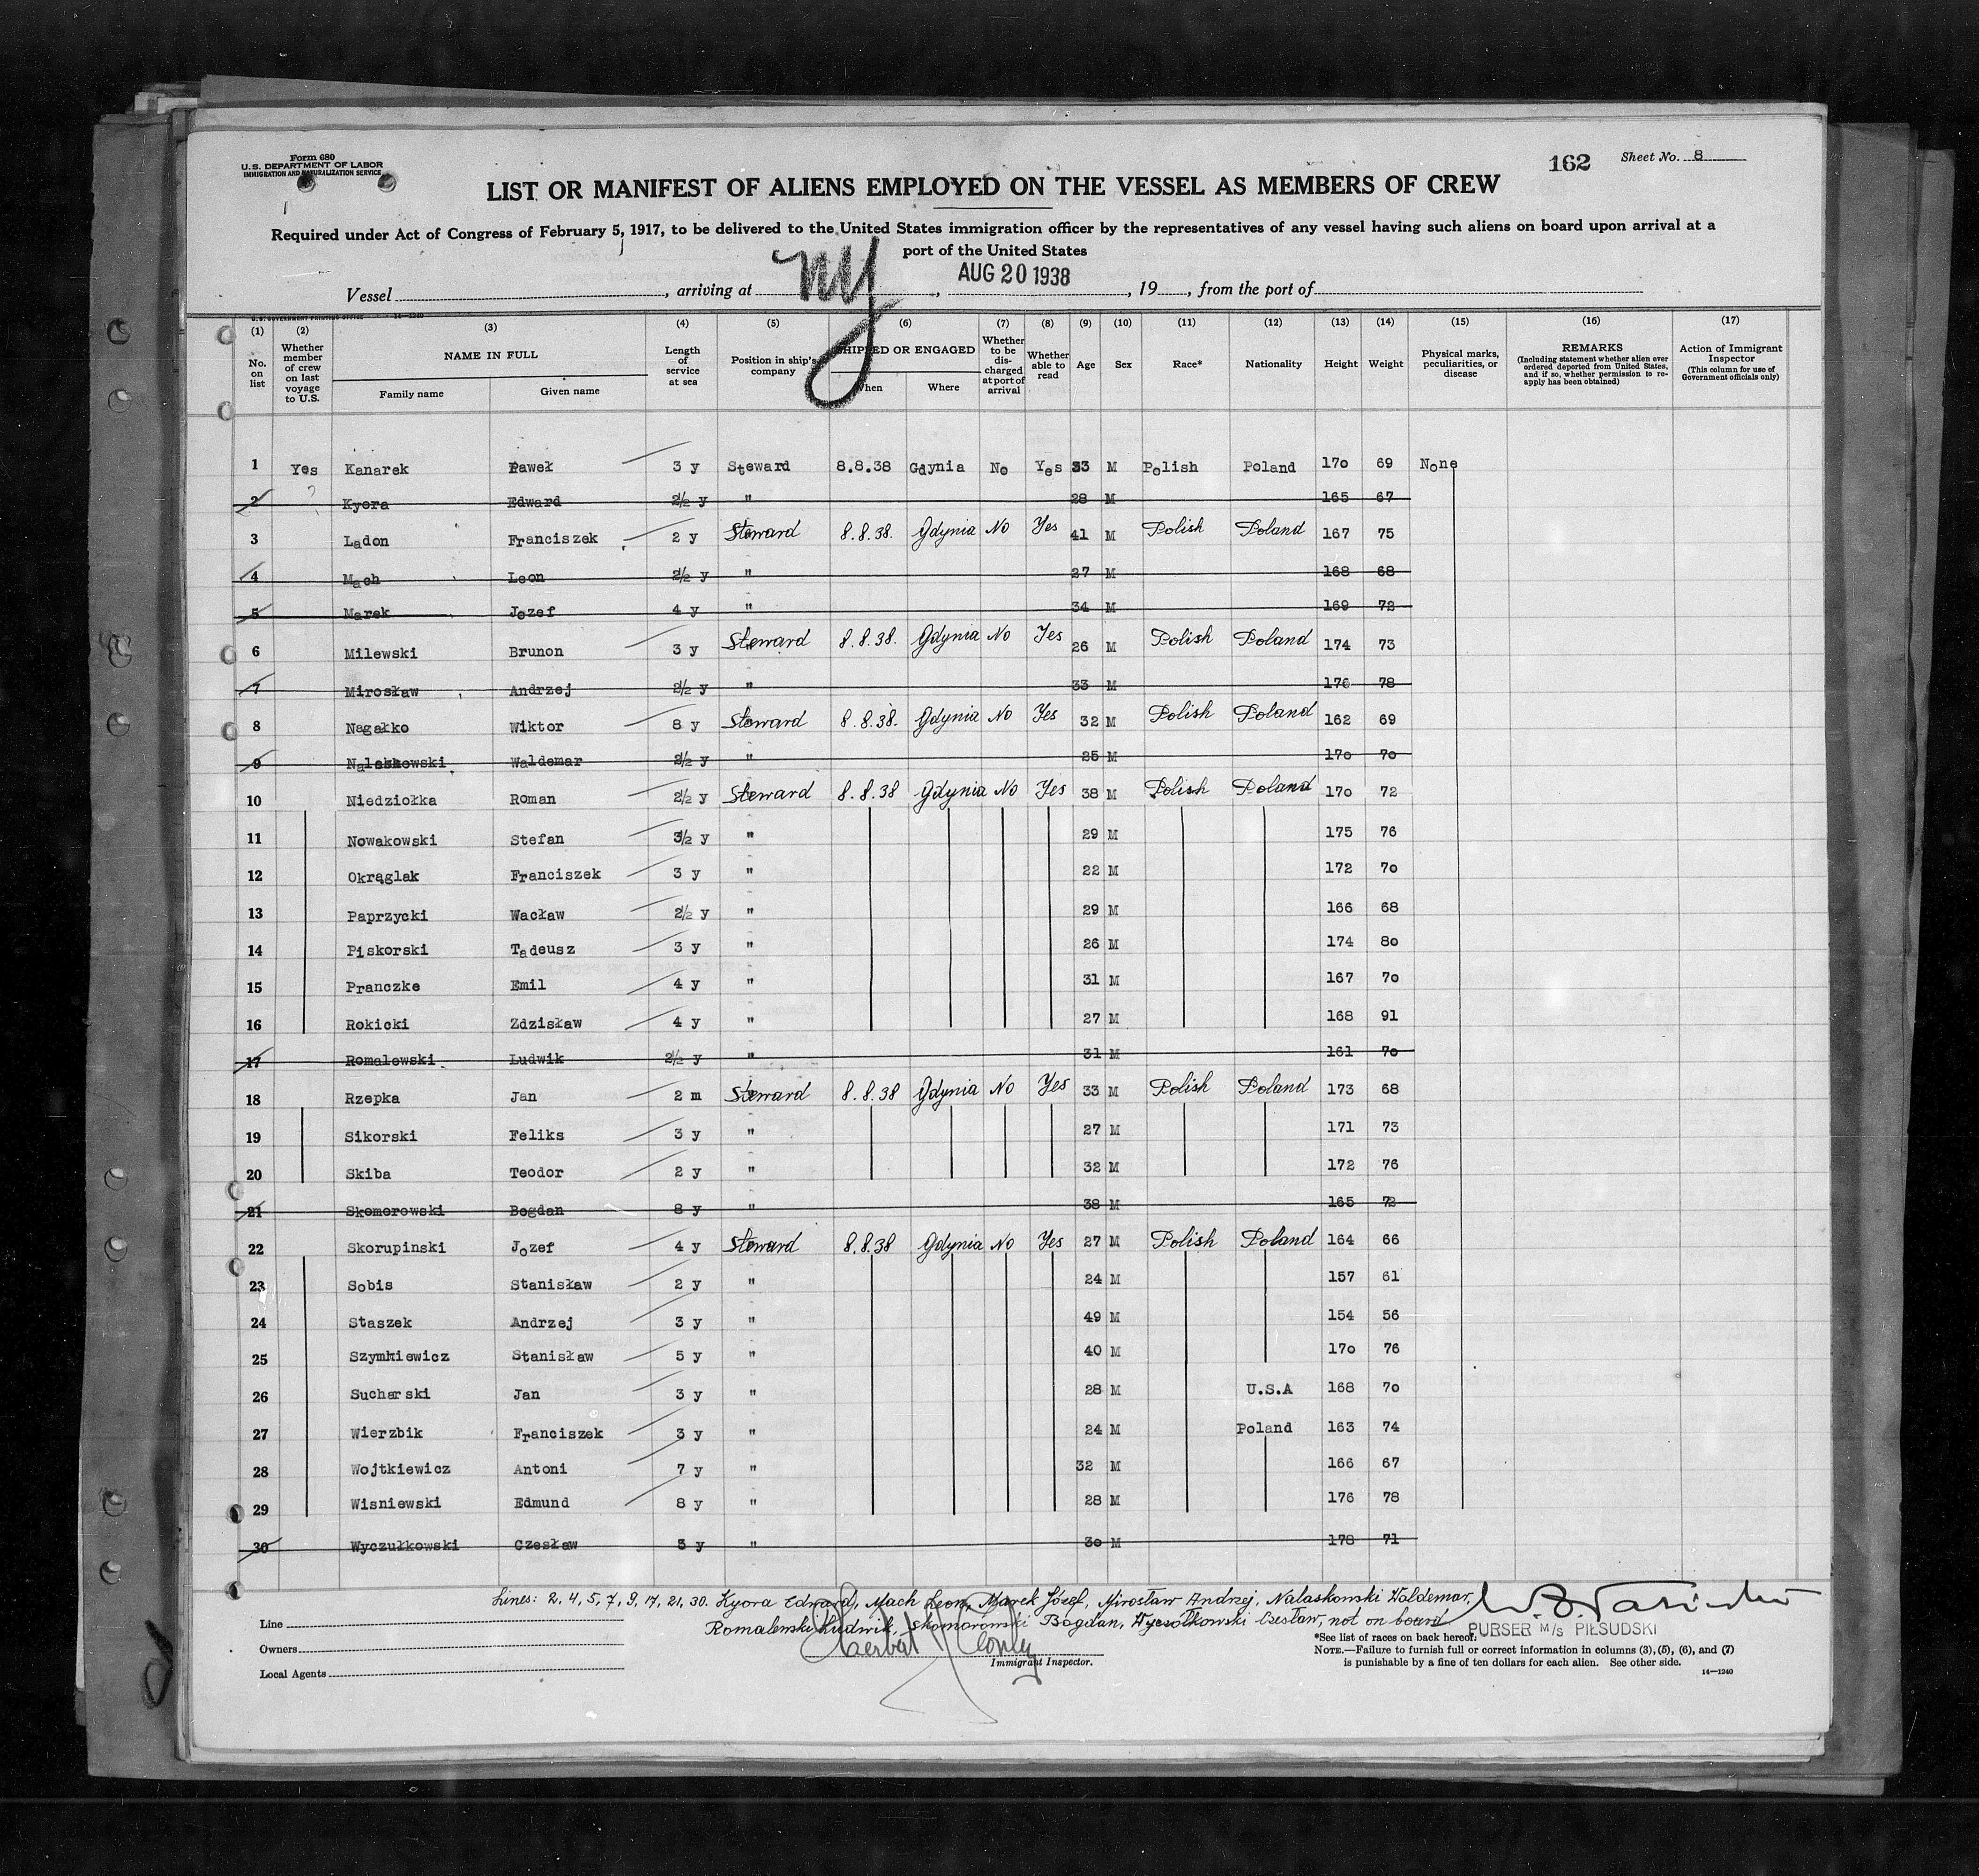 Form 680
U.S. DEPARTMENT OF LABOR
IMMIGRATION AND NATURALIZATION SERVICE
162 Sheet No. 8
LIST OR MANIFEST OF ALIENS EMPLOYED ON THE VESSEL AS MEMBERS OF CREW
Required under Act of Congress of February 5, 1917, to be delivered to the United States immigration officer by the representatives of any vessel having such aliens on board upon arrival at a
port of the United States
Vessel, arriving at NY, AUG 20 1938, 19, from the port of
U.S. GOVERNMENT PRINTING OFFICE 14-1240
(1) (2) (3) (4) (5) (6) (7) (8) (9) (10) (11) (12) (13) (14) (15) (16) (17)
No. on list
Whether member of crew on last voyage to U.S.
NAME IN FULL
Family name Given name
Length of service at sea
Position in ship's company
SHIPPED OR ENGAGED
When Where
Whether to be discharged at port of arrival
Whether able to read
Age Sex Race* Nationality Height Weight
Physical marks, peculiarities, or disease
REMARKS
(Including statement whether alien ever ordered deported from United States, and if so, whether permission to reapply has been obtained)
Action of Immigrant Inspector
(This column for use of Government officials only)
1 Yes Kanarek Paweł 3 y Steward 8.8.38 Gdynia No Yes 33 M Polish Poland 170 69 None
2 ? Kyora Edward 2½ y " 28 M 165 67
3 Ladon Franciszek 2 y Steward 8.8.38. Gdynia No Yes 41 M Polish Poland 167 75
4 Mach Leon 2½ y " 27 M 168 68
5 Marek Jozef 4 y " 34 M 169 72
6 Milewski Brunon 3 y Steward 8.8.38. Gdynia No Yes 26 M Polish Poland 174 73
7 Mirosław Andrzej 2½ y " 33 M 176 78
8 Nagałko Wiktor 8 y Steward 8.8.38. Gdynia No Yes 32 M Polish Poland 162 69
9 Nalaskowski Waldemar 2½ y " 25 M 170 70
10 Niedziołka Roman 2½ y Steward 8.8.38 Gdynia No Yes 38 M Polish Poland 170 72
11 Nowakowski Stefan 3½ y " 29 M 175 76
12 Okrąglak Franciszek 3 y " 22 M 172 70
13 Paprzycki Wacław 2½ y " 29 M 166 68
14 Piskorski Tadeusz 3 y " 26 M 174 80
15 Pranczke Emil 4 y " 31 M 167 70
16 Rokicki Zdzisław 4 y " 27 M 168 91
17 Romalewski Ludwik 2½ y " 31 M 161 70
18 Rzepka Jan 2 m Steward 8.8.38 Gdynia No Yes 33 M Polish Poland 173 68
19 Sikorski Feliks 3 y " 27 M 171 73
20 Skiba Teodor 2 y " 32 M 172 76
21 Skomorowski Bogdan 8 y " 38 M 165 72
22 Skorupinski Jozef 4 y Steward 8.8.38 Gdynia No Yes 27 M Polish Poland 164 66
23 Sobis Stanisław 2 y " 24 M 157 61
24 Staszek Andrzej 3 y " 49 M 154 56
25 Szymkiewicz Stanisław 5 y " 40 M 170 76
26 Sucharski Jan 3 y " 28 M U.S.A 168 70
27 Wierzbik Franciszek 3 y " 24 M Poland 163 74
28 Wojtkiewicz Antoni 7 y " 32 M 166 67
29 Wisniewski Edmund 8 y " 28 M 176 78
30 Wyczułkowski Czesław 5 y " 30 M 178 71
Lines: 2, 4, 5, 7, 9, 17, 21, 30. Kyora Edward, Mach Leon, Marek Józef, Mirosław Andrzej, Nalaskowski Waldemar,
Romalewski Ludwik, Skomorowski Bogdan, Wyczółkowski Czesław, not on board
PURSER M/S PIŁSUDSKI
Line
Owners
Local Agents
Immigrant Inspector.
*See list of races on back hereof.
NOTE.—Failure to furnish full or correct information in columns (3), (5), (6), and (7)
is punishable by a fine of ten dollars for each alien. See other side.
14—1240